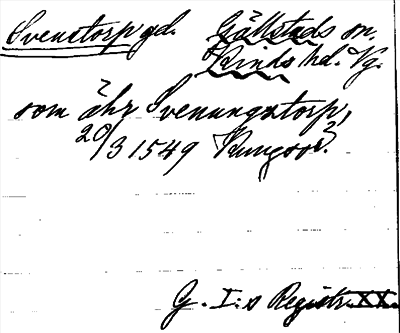 Svenstorp gd. Gällstads sn,
Kinds hd. Vg.
som åhr Svenungztorp,
20/3 1549 Kungsör?
G. I:s Registr. XX.